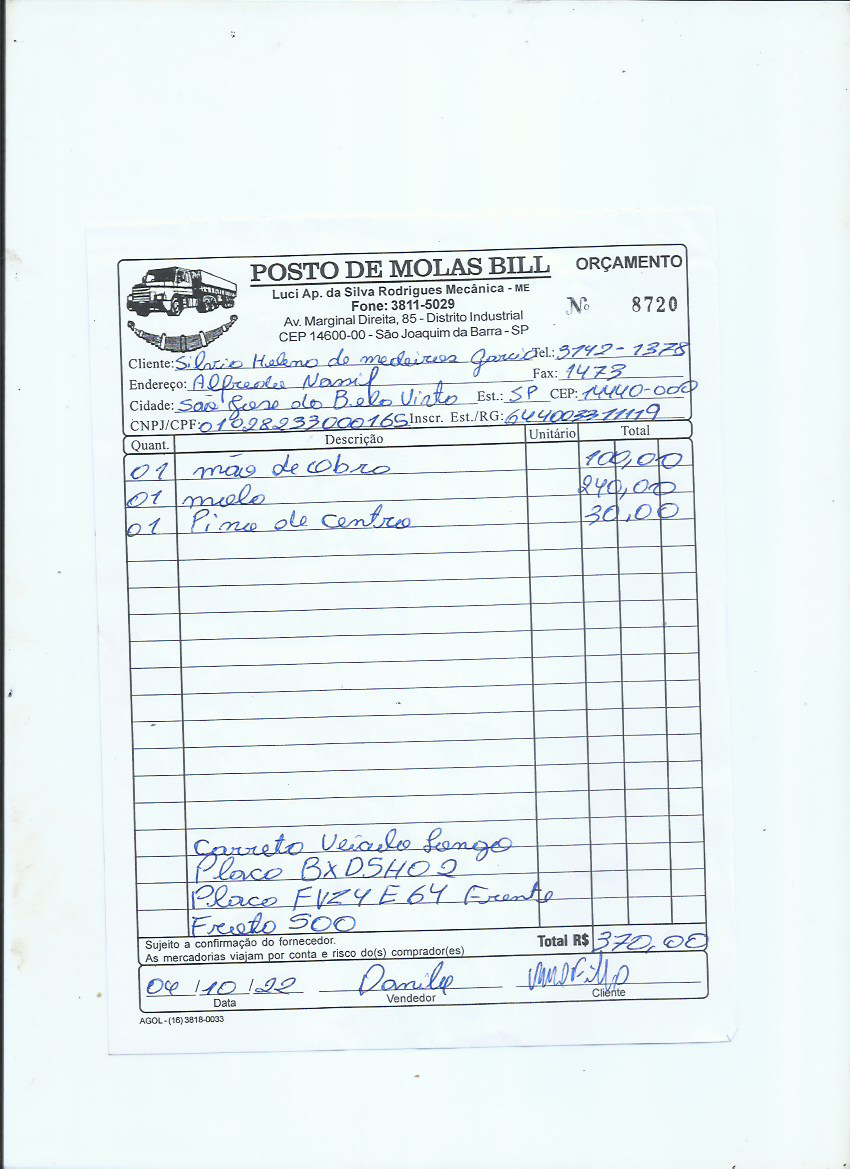 POSTO DE MOLAS BILL ORÇAMENTO
Luci Ap. da Silva Rodrigues Mecânica - ME
Fone: 3811-5029 Nº 8720
Av. Marginal Direita, 85 - Distrito Industrial
CEP 14600-00 - São Joaquim da Barra - SP
Cliente: Silvio Heleno de medeiros Garcia Tel.: 3142-1378
Endereço: Alfredo Nassif Fax: 1473
Cidade: São Jose do Bela Vista Est.: SP CEP: 14440-000
CNPJ/CPF: 01928233000165 Inscr. Est./RG:
Quant. Descrição Unitário Total
01 mão de obra 100,00
01 mola 240,00
01 Pino de centro 30,00
Carreto Veiculo Longo
Placa BXD5H02
Placa FVZ4E64 Frente
500
Sujeito a confirmação do fornecedor.
As mercadorias viajam por conta e risco do(s) comprador(es) Total R$ 370,00
/10/22 Danilo
Data Vendedor Cliente
AGOL - (16) 3818-0033